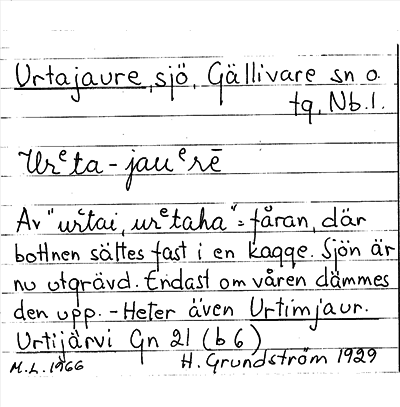 Urtajaure, sjö, Gällivare sn o.
tg, Nb.l.
Urᵉta-jauᵉrē
Av "urᵉtai, urᵉtaha" = fåran, där
bottnen sättes fast i en kagge. Sjön är
nu utgrävd. Endast om våren dämmes
den upp. - Heter även Urtimjaur.
Urtijärvi Gn 21 (b 6)
M.L. 1966 H. Grundström 1929